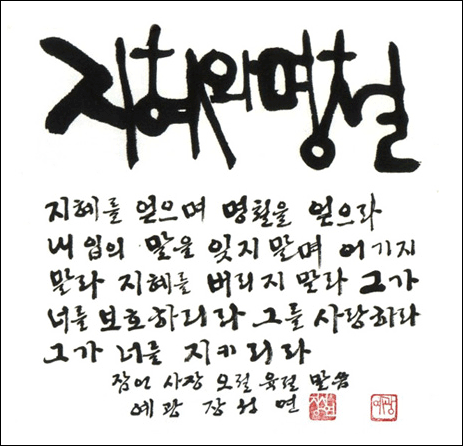 지혜와 명철
지혜를 얻으며 명철을 얻으라
내 입의 말을 잊지 말며 어기지
말라 지혜를 버리지 말라 그가
너를 보호하리라 그를 사랑하라
그가 너를 지키리라
잠언 사장 오절 육절 말씀
예광 장성연
예광